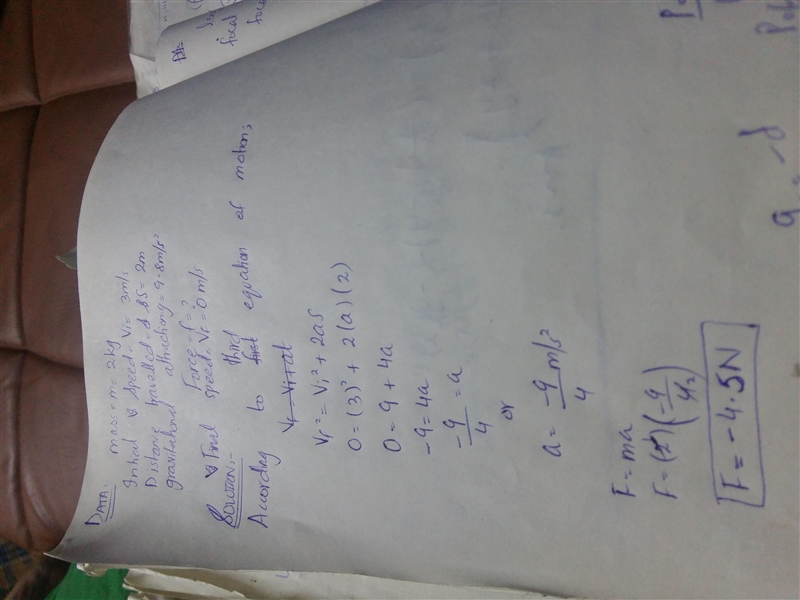 DATA:
mass = m = 2kg
Initial speed = Vi = 3m/s
Distance travelled = ΔS = 2m
gravitational attraction g = 9.8m/s²
Force = F = ?
Final speed = Vf = 0 m/s
SOLUTION:-
According to third equation of motion;
Vf = Vi + at
Vf² = Vi² + 2aS
0 = (3)² + 2(a)(2)
0 = 9 + 4a
-9 = 4a
-9/4 = a
or
a = -9/4 m/s²
F = ma
F = (2)(-9/4₂)
F = -4.5N